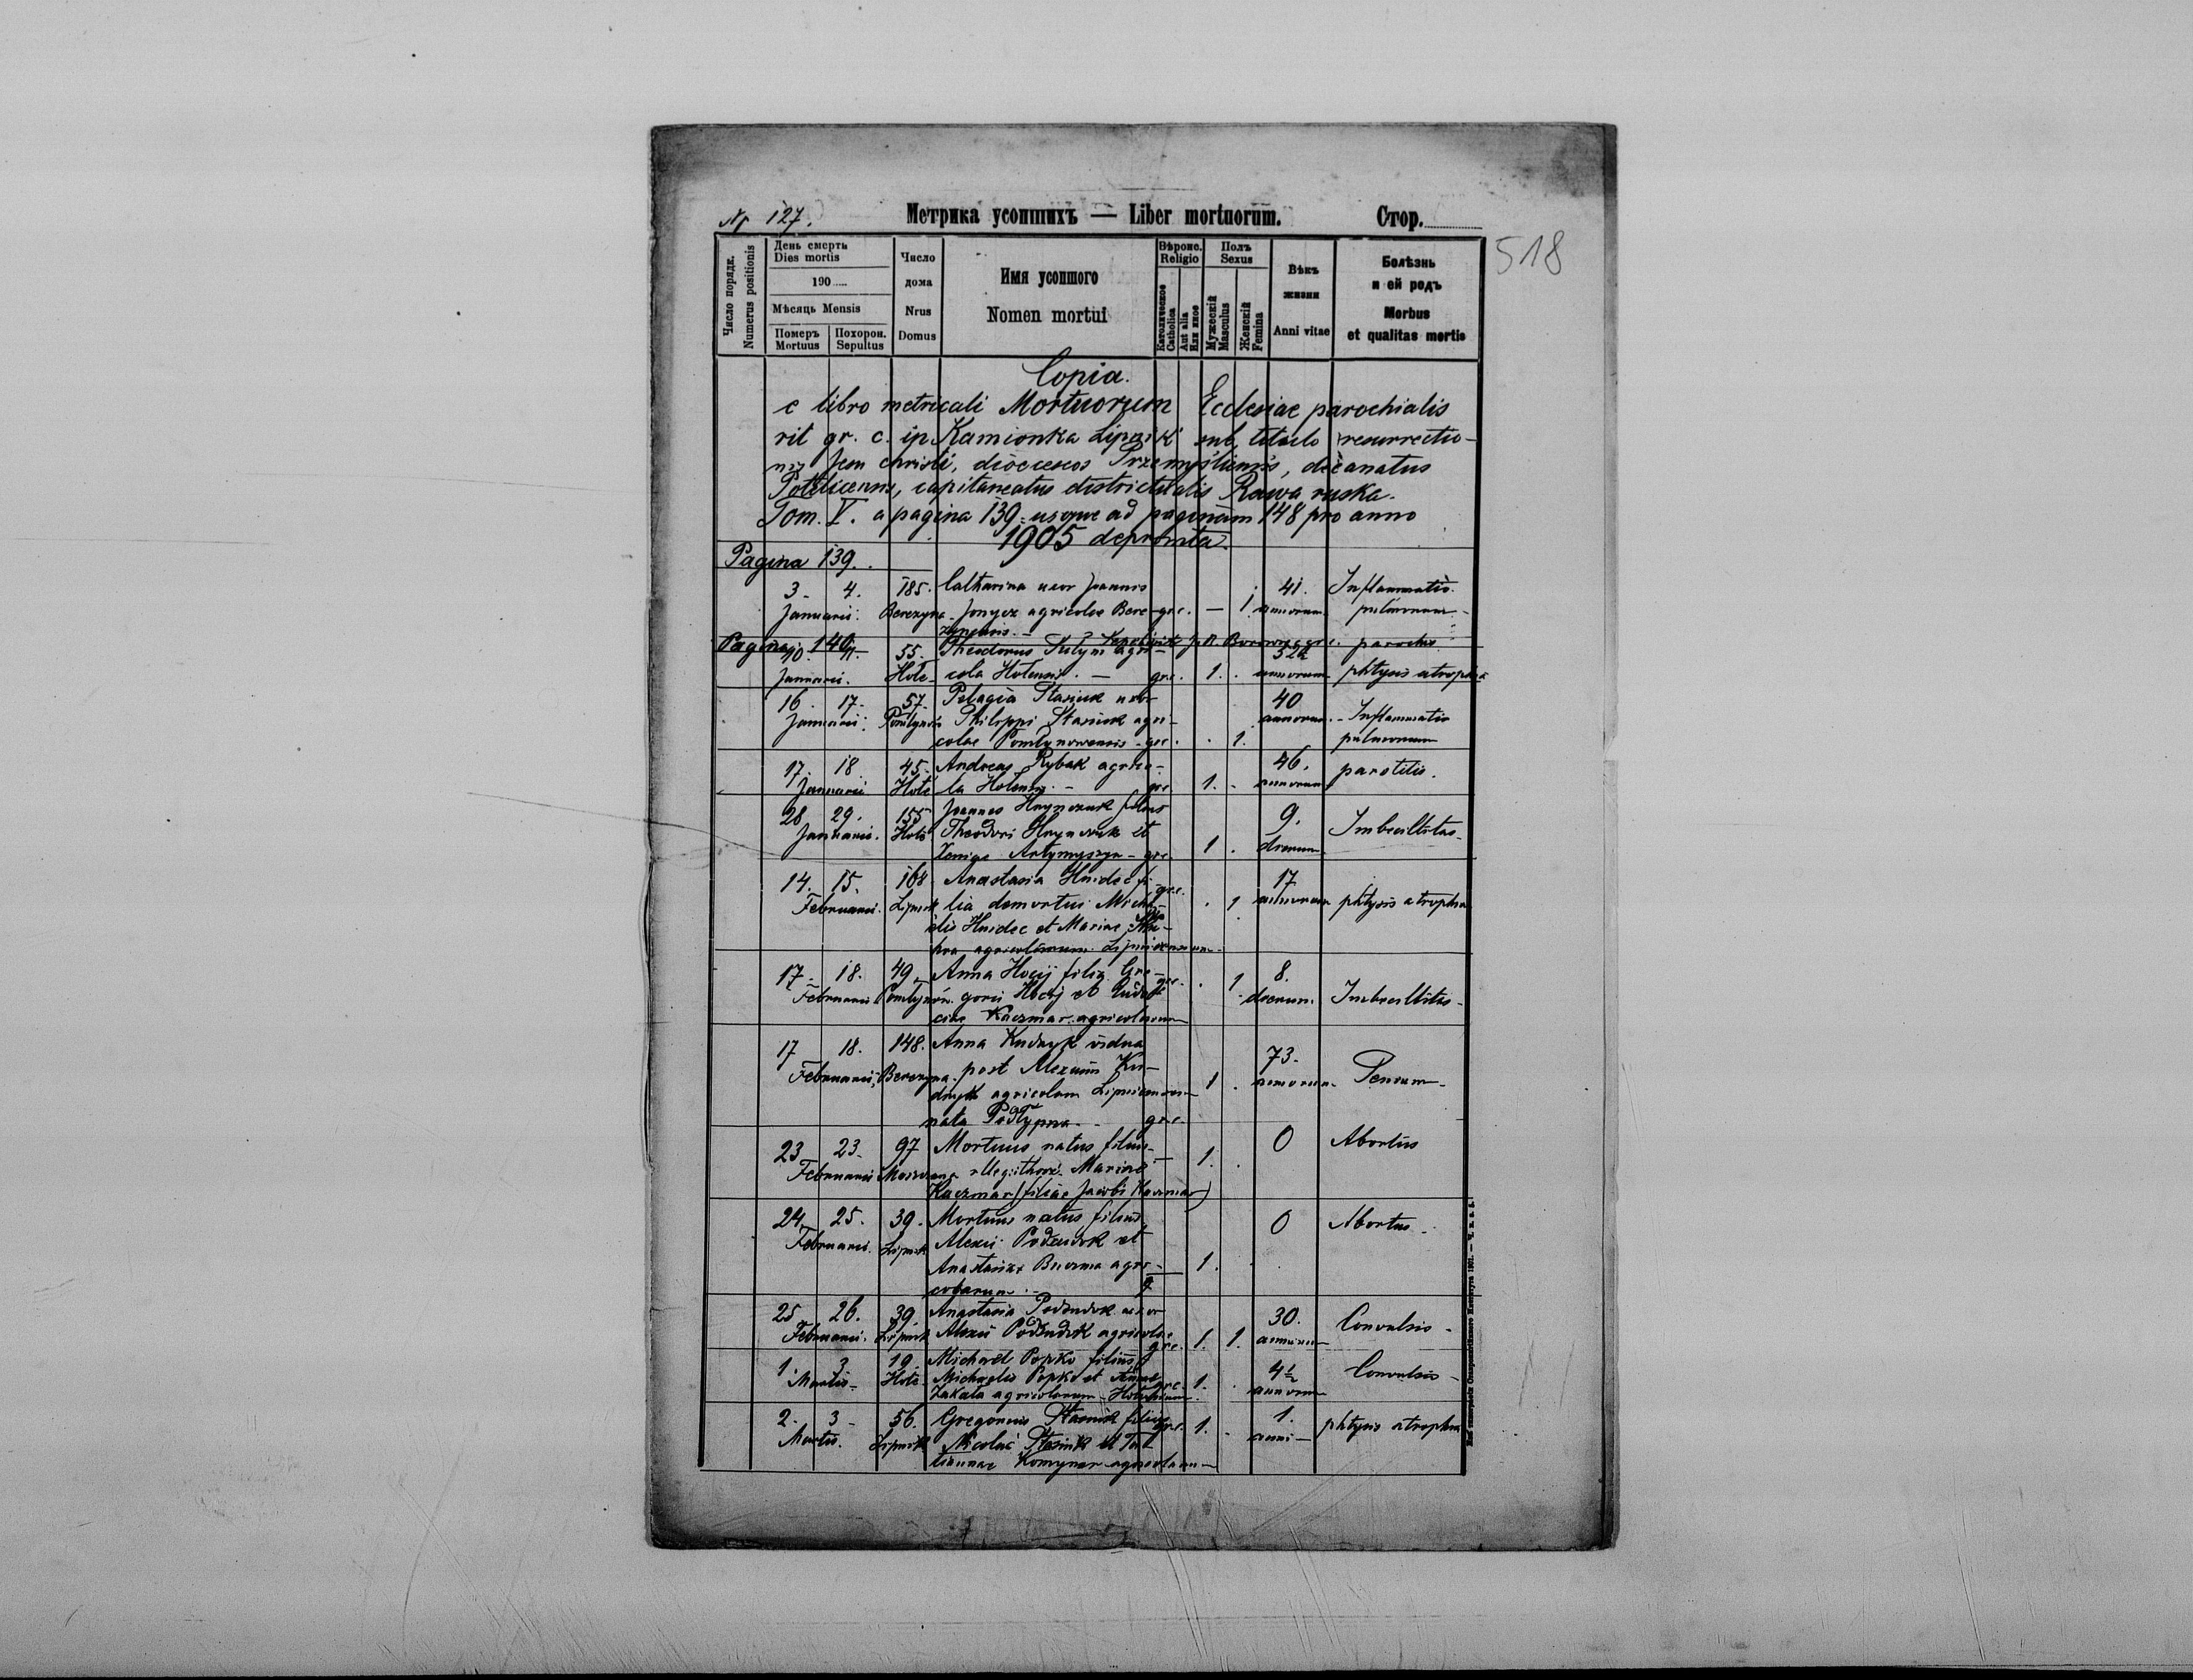 Nr 127.
Метрика усопшихъ — Liber mortuorum.
Стор.
518
Число порядк.
Numerus positionis
День смерть
Dies mortis
190
Мѣсяць Mensis
Померъ
Mortuus
Похорон.
Sepultus
Число
дома
Nrus
Domus
Имя усопшого
Nomen mortui
Вѣроис.
Religio
Католическое
Catholica
Aut alia
Или иное
Полъ
Sexus
Мужескій
Masculus
Женскій
Femina
Вѣкъ
жизни
Anni vitae
Болѣзнь
и ей родъ
Morbus
et qualitas mortis
Copia.
e libro metricali Mortuorum Ecclesiae parochialis
rit gr. c. in Kamionka Lipnik sub titulo resurrectio-
nis Jesu Christi, dioeceseos Przemysliensis, decanatus
capitaneatus districtualis Rawa ruska.
Tom. V. a pagina 139 usque ad paginam 148 pro anno
1905 deprompta.
Pagina 139.
3. 4. 185. Catharina uxor Joannis 41. Inflammatio
Januarii. Berezyna agricolae Bere- gr.c. — 1 annorum pulmonum
Pagina 140. parochus
10. 55. Theodorus agri- 52
Januarii. Hole- cola Holensis. — gr.c. 1. annorum phtysis atrophia
16. 17. 57. Pelagia Stasiuk uxor 40
Januarii. Philippi Stasiuk agri- annorum - Inflammatio
colae gr.c. 1. pulmonum
17. 18 45. Andreas Rybak agrico- 46. parotitis.
Januarii Hole la Holensis. — gr.c 1. annorum
28 29. 155 Joannes Hrynczuk filius 9.
Januarii. Hole Theodori Hrynczuk et Imbecillitas
Artymyszyn - gr.c. 1. dierum
14. 15. 168 Anastasia Hnidec fi- gr.c. 17
Februarii. Lipnik lia demortui Micha- 1 annorum phtysis atrophia
elis Hnidec et Mariae
agricolarum
17. 18. 49. Anna Hocij filia Gre- gr.c. 1 8.
Februarii gorii Hocij et dierum. Imbecillitas
Kaczmar agricolarum
17 18. 148. Anna Kudryk vidua 73.
Februarii, Berezyna. post Alexium Ku- 1 annorum Senium
dryk agricolam
nata gr.c.
23 23. 97 Mortuus natus filius — 1. 0 Abortus
Februarii illegithimi Mariae
Kaczmar (filiae Jacobi Kaczmar)
24. 25. 39. Mortuus natus filius 0 Abortus
Februarii. Lipnik Alexii et
Anastasiae agri- 1.
colarum.
25 26. 39. Anastasia uxor 30. Convulsis
Februarii. Lipnik Alexii agricolae gr.c. 1. 1. annorum
1. 3 19. Michael Popko filius 4½ Convulsis
Martis Hole Michaelis Popko et gr.c. 1. annorum
Zakala agricolarum
2. 3 56. Gregorius Stasiuk filius gr.c. 1. 1. phtysis atrophia
Martis. Lipnik Nicolai Stasiuk et Ta- anni
tiannae agricolarum